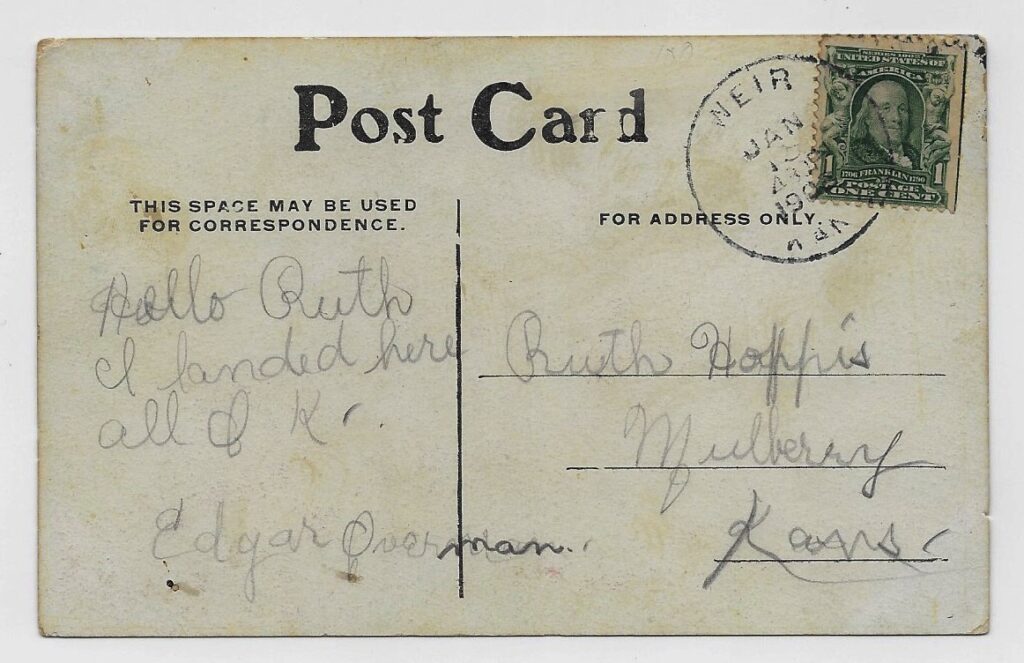 Post Card
THIS SPACE MAY BE USED
FOR CORRESPONDENCE.
FOR ADDRESS ONLY.
WEIR
JAN
KAN
SERIES 1902
UNITED STATES OF
AMERICA
1706 FRANKLIN 1790
1 POSTAGE 1
ONE CENT
Hallo Ruth
I landed here
all O K.
Edgar Overman.
Ruth Hoppis
Mulberry
Kans.